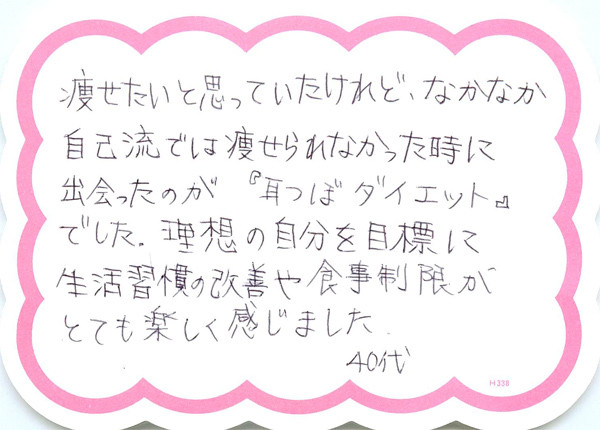 痩せたいと思っていたけれど、なかなか
自己流では痩せられなかった時に
出会ったのが『耳つぼダイエット』
でした。理想の自分を目標に
生活習慣の改善や食事制限が
とても楽しく感じました.
40代
H338